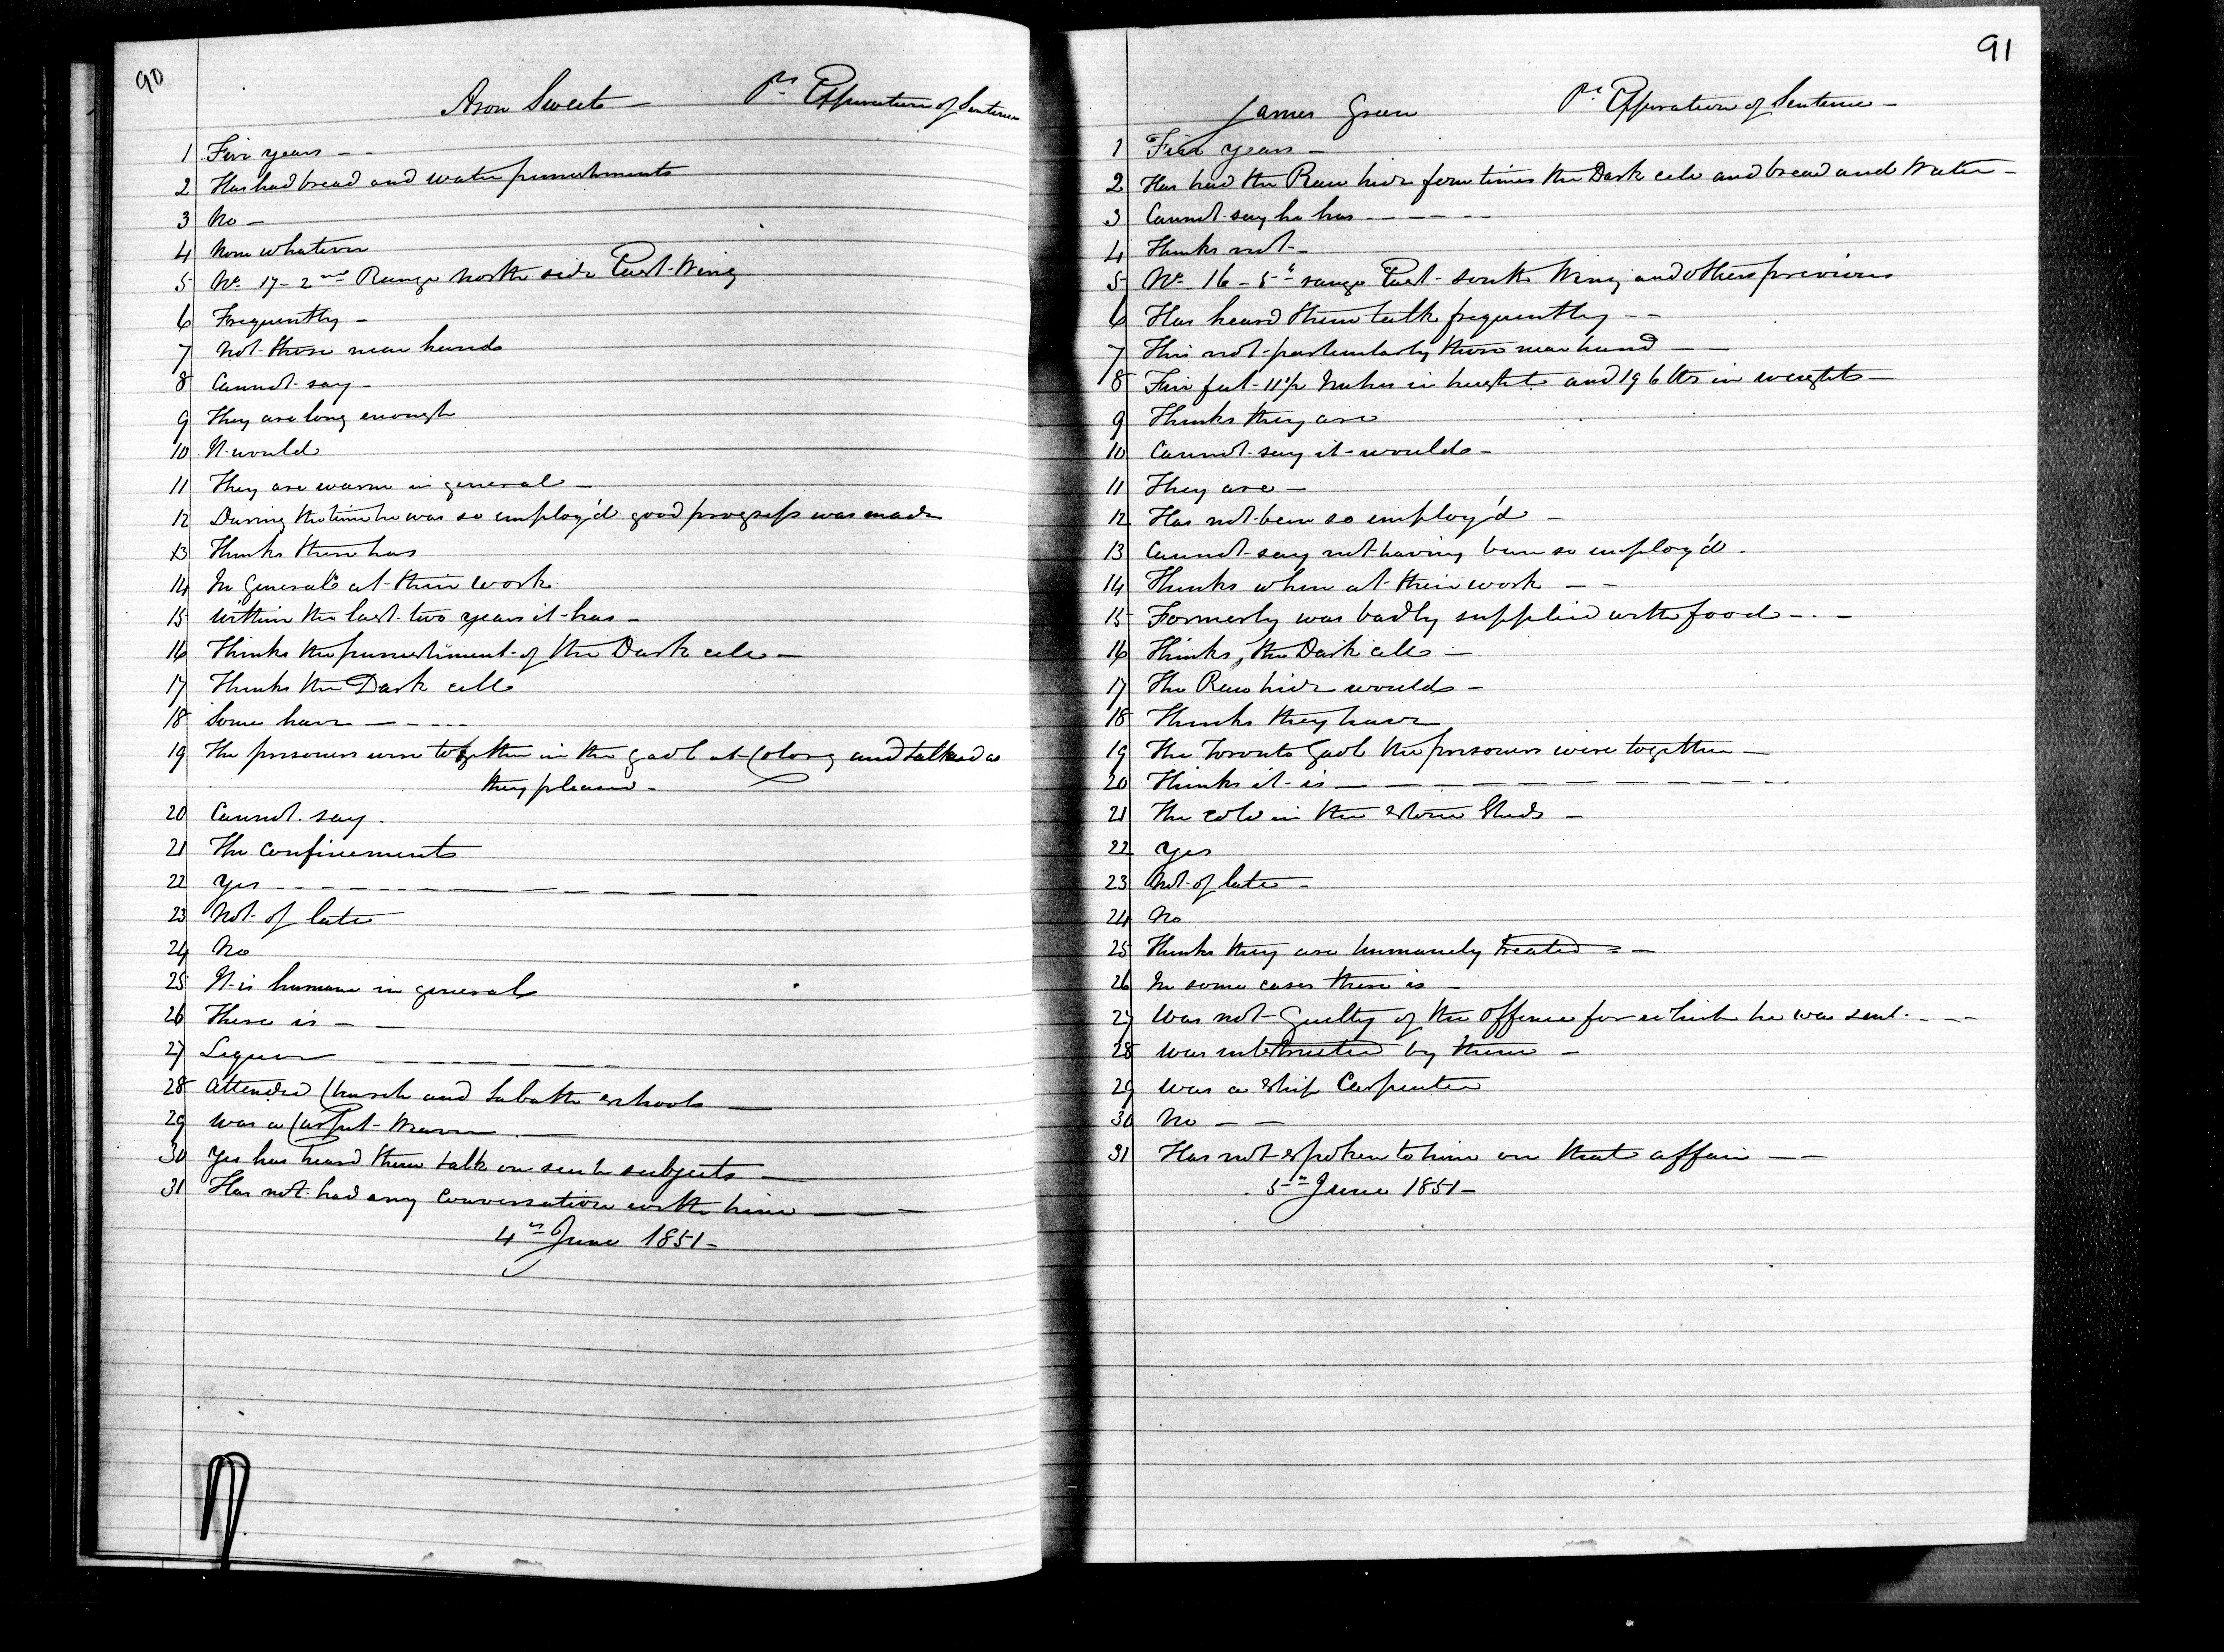 90
Aron Sweet — Pr. Expiration of Sentence
1 Five years — -
2 Has had bread and water punishments
3 No —
4 None whatever
5 No. 17 - 2nd Range North side East Wing
6 Frequently —
7 Not those near hand
8 Cannot say —
9 They are long enough
10 It would
11 They are warm in general —
12 During the time he was so employ'd good progress was made
13 Thinks there has
14 In General at their work
15 Within the last two years it has —
16 Thinks the punishment of the Dark cell —
17 Thinks the Dark cell
18 Some have — - - - -
19 The prisoners were together in the gaol at Cobourg and talked as
they pleased —
20 Cannot say.
21 The confinement
22 Yes - - - - - — — — — —
23 Not of late
24 No
25 It is humane in general
26 There is — —
27 Liquor — — — — — —
28 Attended Church and Sabath schools —
29 Was a Carpet Weaver —
30 Yes has heard them talk on such subjects —
31 Has not had any conversation with him — —
4th June 1851 —
91
James Green Pr. Expiration of Sentence —
1 Five years —
2 Has had the Raw hide four times the Dark cell and bread and Water —
3 Cannot say he has - - - - - -
4 Thinks not —
5 No. 16 - 5th range East - south Wing and others previous
6 Has heard them talk frequently - -
7 This not particularly those near hand — —
8 Five feet 11½ Inches in height and 196 lbs in weight —
9 Thinks they are
10 Cannot say it would —
11 They are —
12 Has not been so employ'd —
13 Cannot say not having been so employ'd .
14 Thinks when at their work — -
15 Formerly was badly supplied with food - . -
16 Thinks, the Dark cell —
17 The Raw hide would —
18 Thinks they have
19 The Toronto Gaol the prisoners were together —
20 Thinks it is — — — — — — — — — -
21 The cold in the stone Sheds —
22 Yes
23 Not of late -
24 No
25 Thinks they are humanely treated = —
26 In some cases there is —
27 Was not Guilty of the Offence for which he was sent. - - -
28 Was instructed by them —
29 Was a Ship Carpenter
30 No — —
31 Has not spoken to him on that affair — —
5th June 1851 —